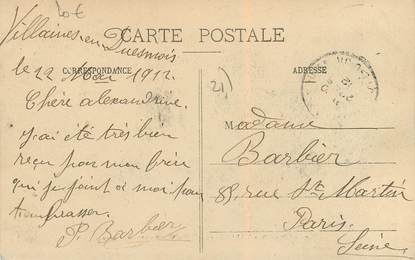 10€
Villaines en Duesmois
CARTE POSTALE
le 12 Mai 1912.
CORRESPONDANCE
ADRESSE
21
Chère alexandrine.
j'ai été très bien
reçu par mon frère
qui se joint a moi pour
t'embrasser.
P. Barbier
Madame
Barbier
88, rue St. Martin
Paris.
Seine.